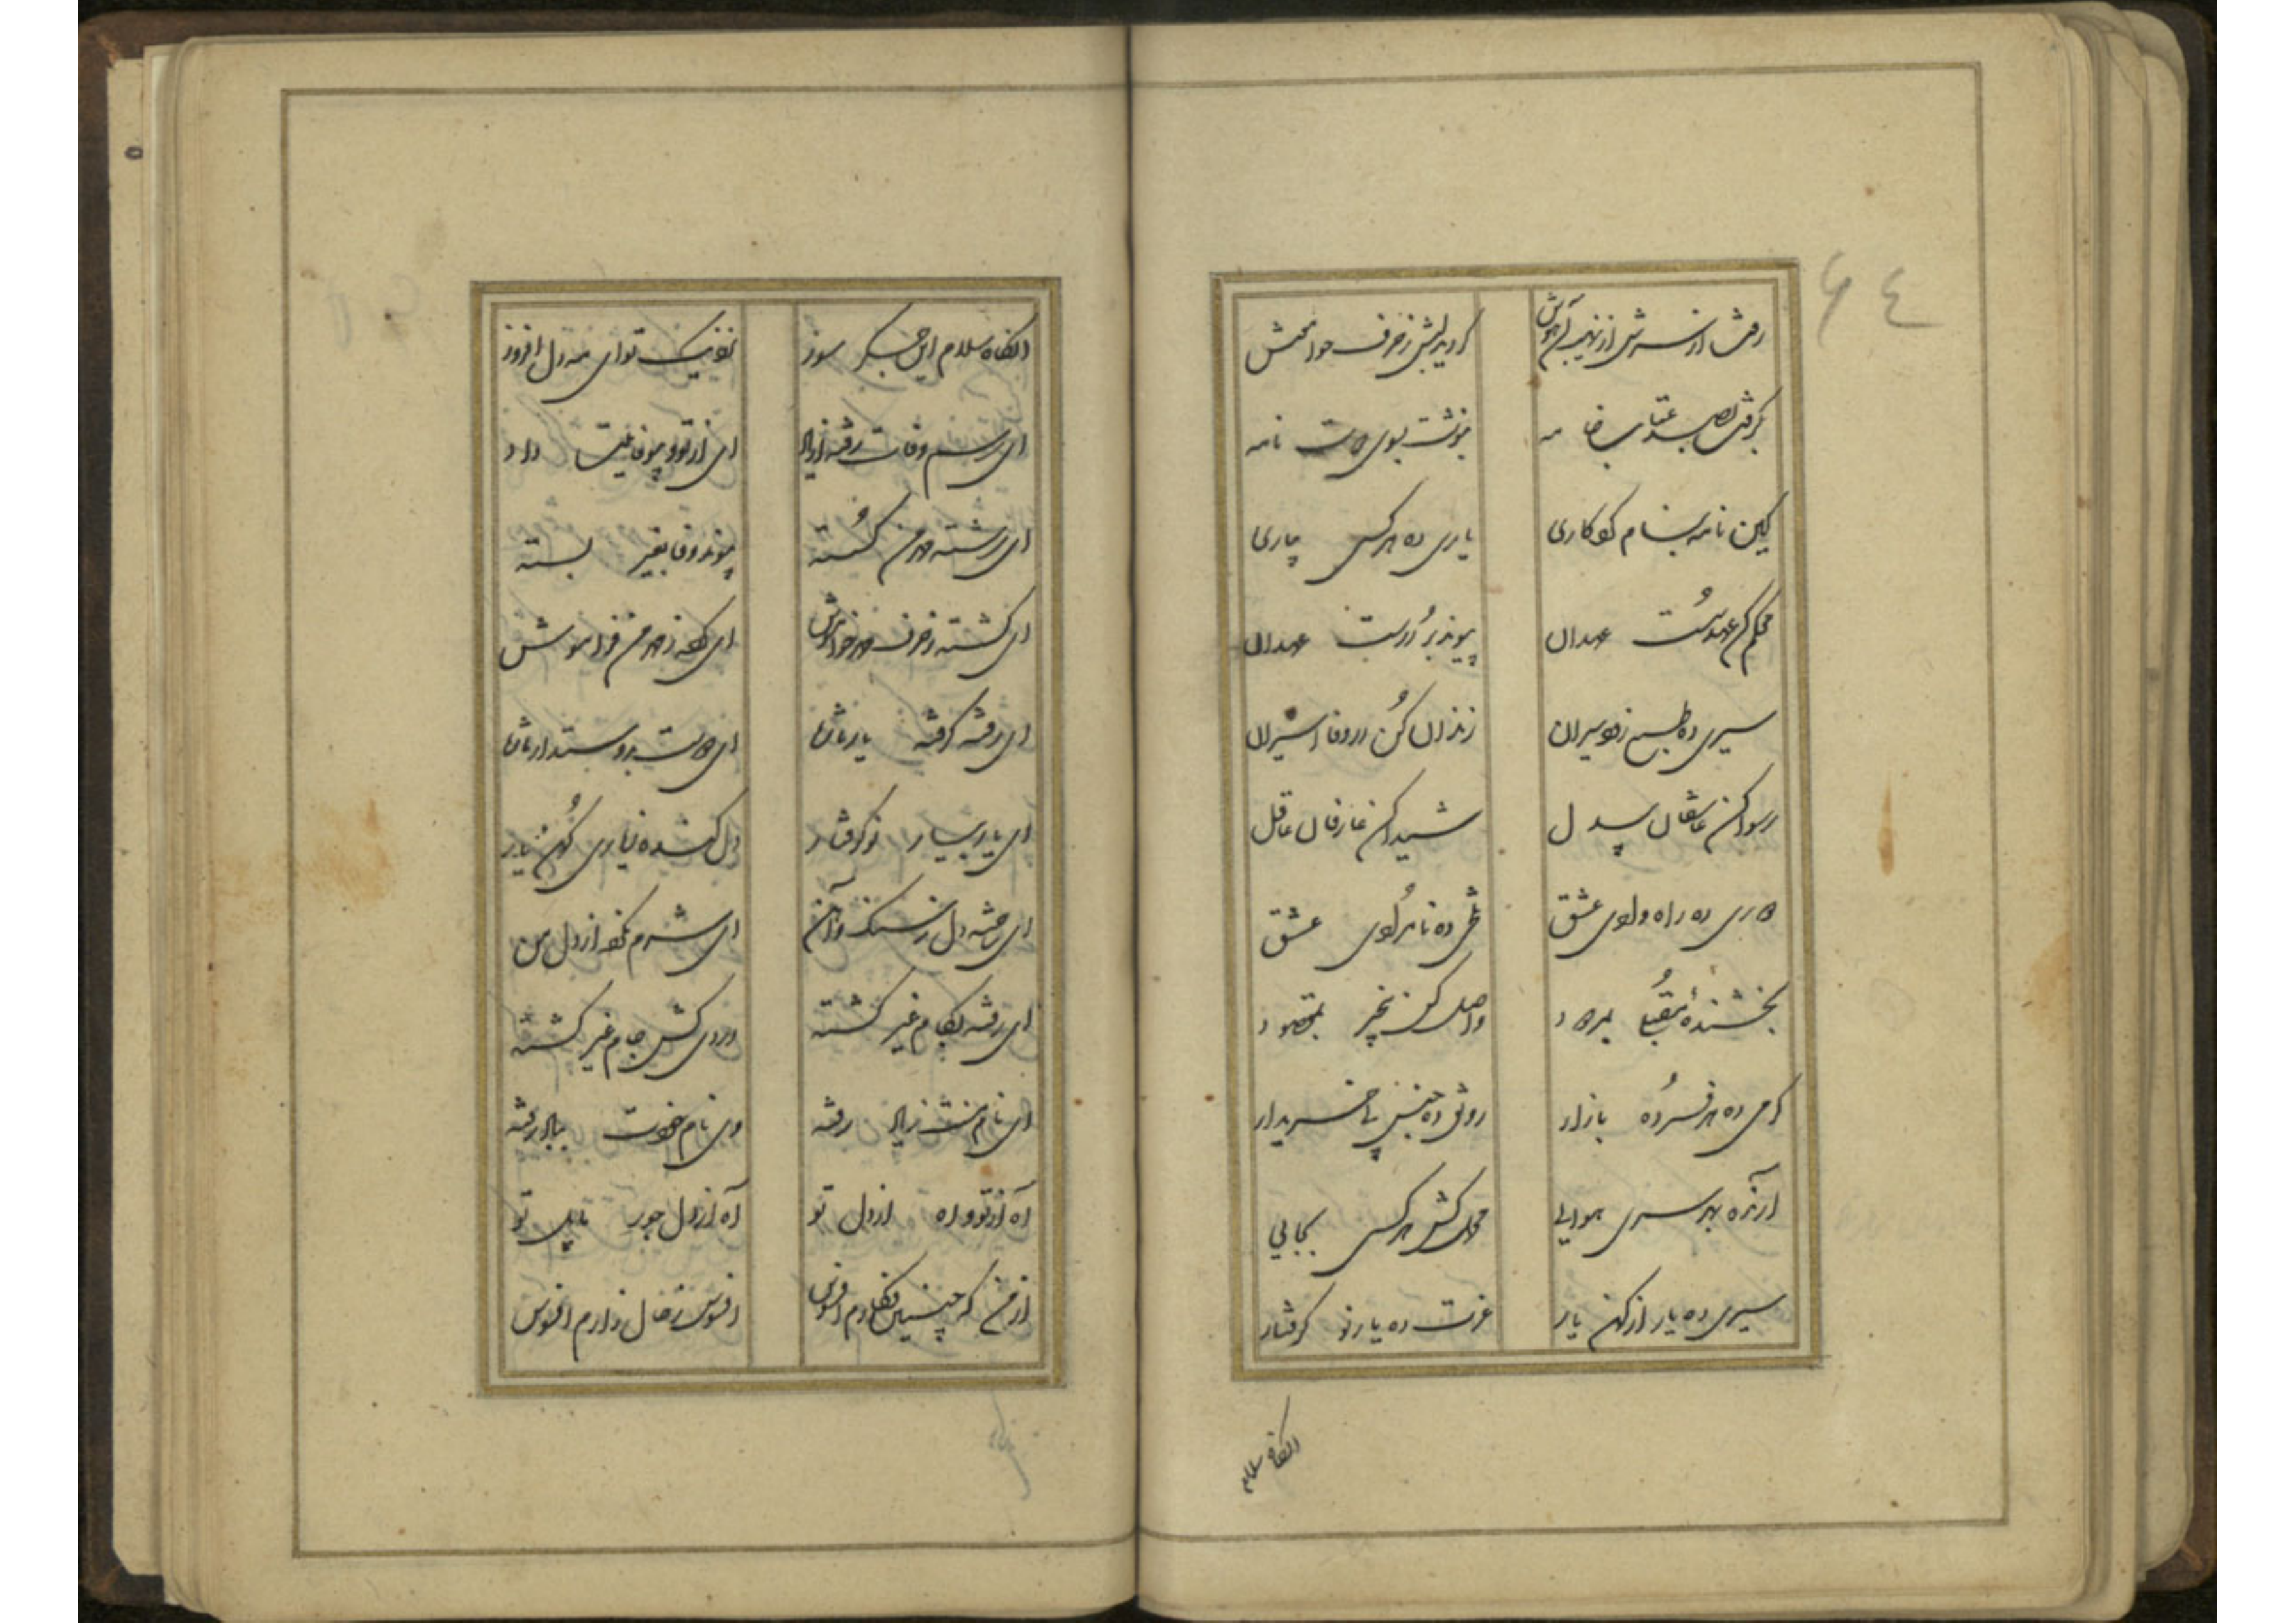 ٦٤
رفت از سرش از نهیب آن هوش
گردید لبش ز حرف خواهش
برقی بصد عتاب خامه
بنوشت بسوی دوست نامه
کین نامه بنام کوکاری
یاری ده هر کسی بیاری
محکم کن عهد سست عهدان
پیوند بر درست عهدان
سیری ده طبع زود سیران
زندان کن در وفا اسیران
رسوا کن عاشقان بیدل
شیدا کن عارفان عاقل
ده راه بوادی عشق
ده تا بکوی عشق
بخشنده بمراد
واصل کن بمقصود
گرمی ده هر فسرده بازار
رونق ده جنس بی خریدار
آرنده بهر سری هوایی
محمل کش هر کسی بجایی
سیری ده یار از کهن یار
عزت ده یار نو گرفتار
آنگاه سلام
آنگاه سلام این جگر سوز
نزدیک تو ای مه دل افروز
ای رسم وفات رفته از یاد
ای از تو و بیوفائیت داد
ای رشته مهر من گسسته
پیوند وفا بغیر بسته
ای گشته ز حرف مهر خاموش
ای کرده ز مهر من فراموش
ای رفته گرفته یار تازه
ای دوست بدوستدار تازه
ای یار بیار نو گرفتار
دل کنده ز یاری کهن یار
ای ساخته دل ز سنگ و آهن
ای شرم نکرده از دل من
ای رفته بکام غیر گشته
دردی کش جام غیر گشته
ای نام منت ز یاد رفته
وی نام خودت بباد رفته
آه از تو و آه از دل تو
آه از دل جور مایل تو
از من که چنین فتادم افسوس
افسوس ز حال زارم افسوس